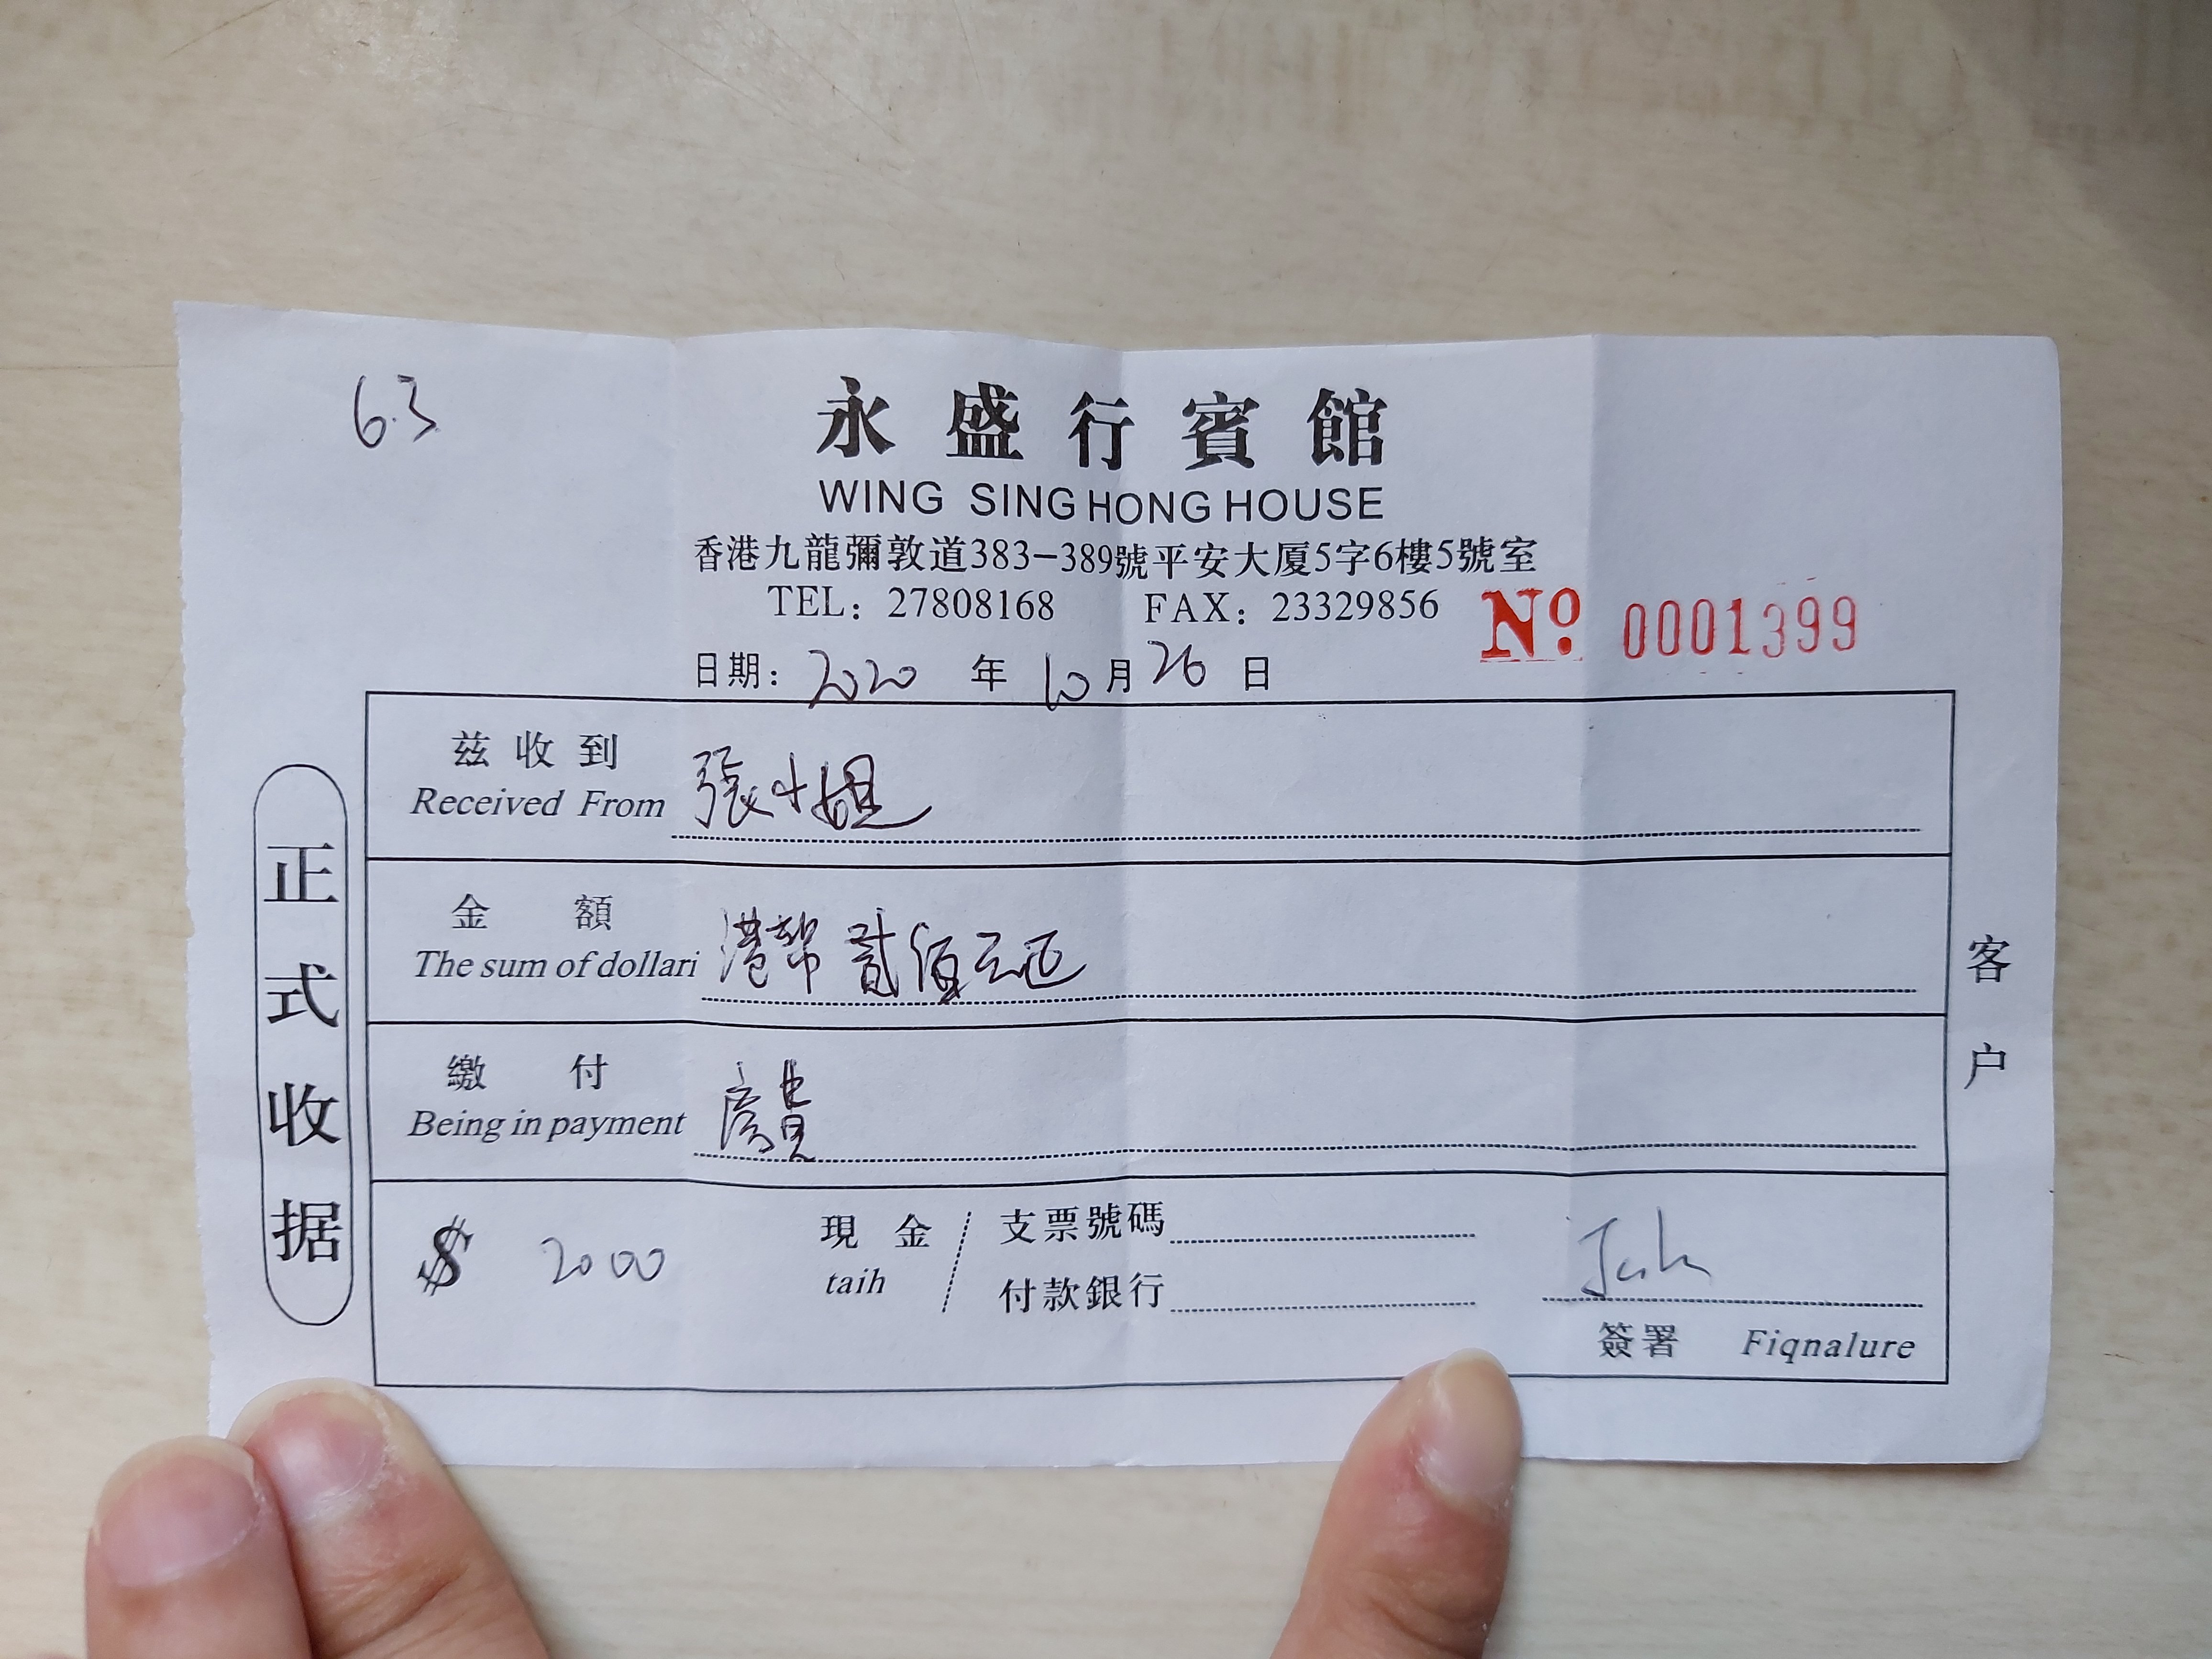 6.3
永盛行賓館
WING SING HONG HOUSE
香港九龍彌敦道383-389號平安大厦5字6樓5號室
TEL: 27808168 FAX: 23329856
Nº 0001399
日期: 2020 年 10 月 26 日
正式收据
兹收到 張小姐
Received From
金額 港幣貳佰元正
The sum of dollari
繳付 房費
Being in payment
$ 2000
現金
taih
支票號碼
付款銀行
簽署 Fiqnalure
客户